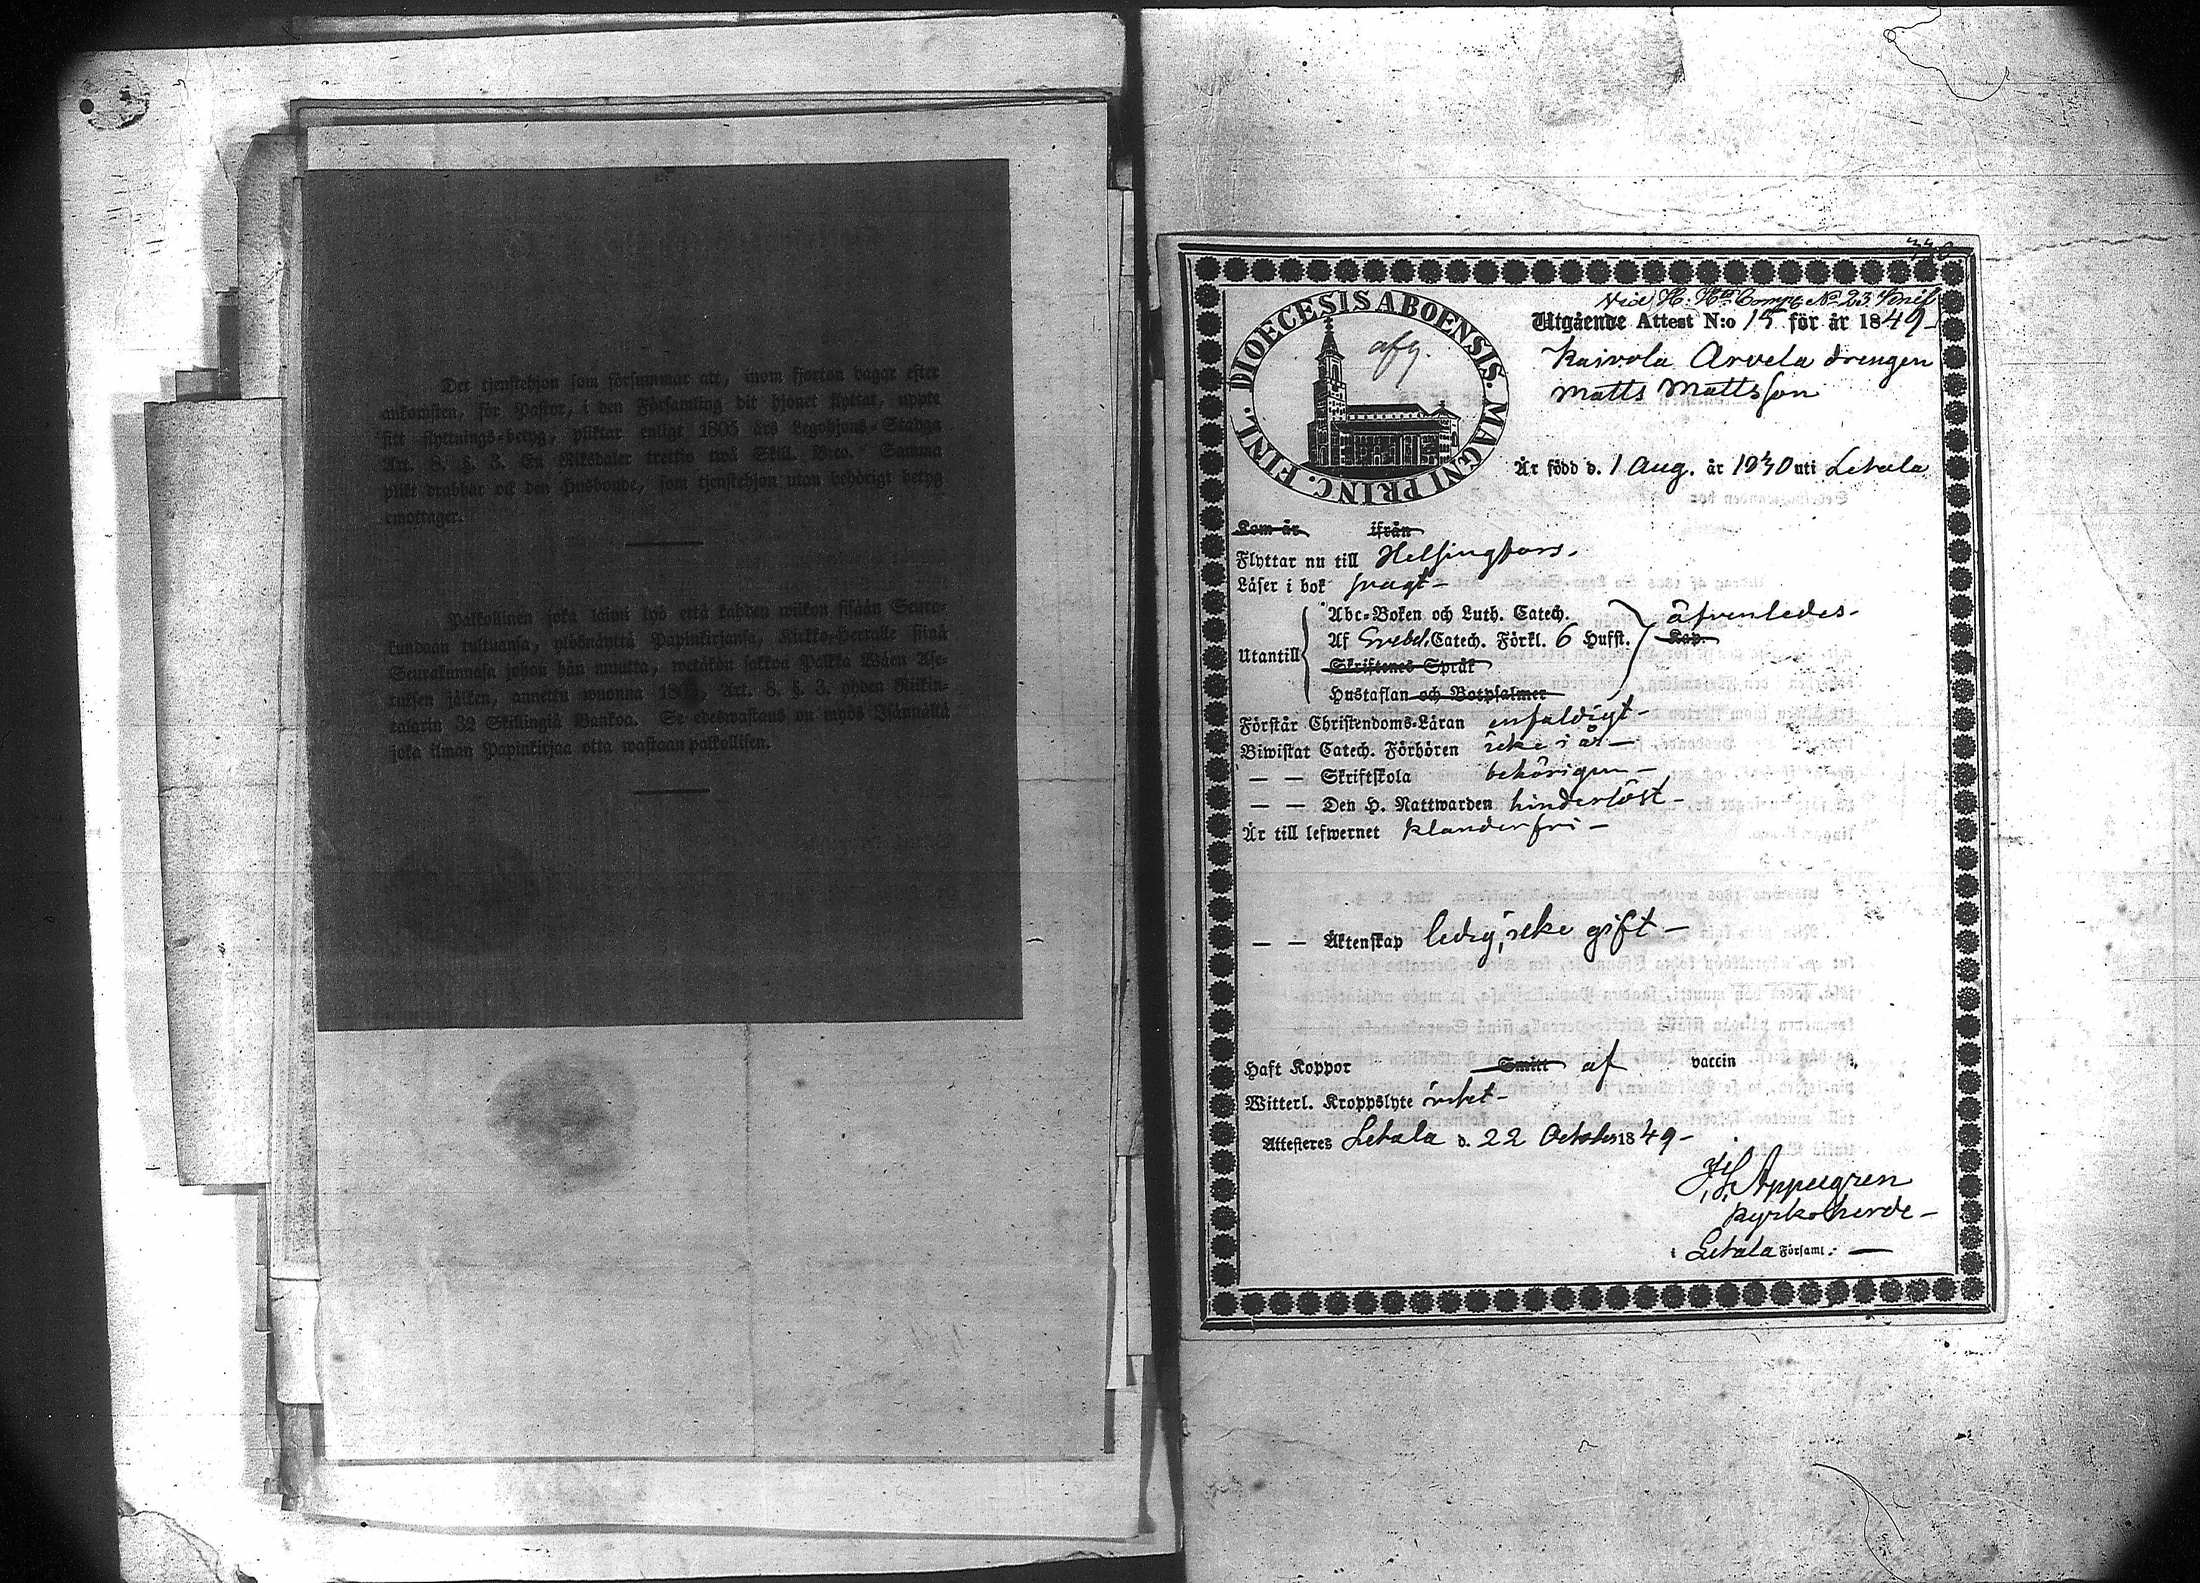 Det tjenstehjon som försummar att, inom fjorton dagar efter
ankomsten, för Pastor, i den Församling dit hjonet flyttat, uppte
sitt flyttnings-betyg, pliktar enligt 1805 års Legohjons-Stadga
Art. 8. §. 3. En Riksdaler trettio twå Skill. Bco. Samma
plikt drabbar ock den Husbonde, som tjenstehjon utan behörigt betyg
emottager.
Palkollinen joka laimi lyö että kahden wiikon sisään Seura-
kundaan tultuansa, ylösnäyttä Papinkirjansa, Kirkko-Herralle siinä
Seurakunnasa johon hän muutta, wetäkön sakkoa Palkka Wäen Ase-
tuksen jälken, annettu wuonna 1805, Art. 8. §. 3. yhden Riikin-
talarin 32 Skillingiä Bankoa. Se edeswastaus on myös Isännällä
joka ilman Papinkirjaa otta wastaan palkollisen.
DIOECESIS ABOENSIS. MAGNI PRINC. FINL.
afg.
Utgående Attest N:o 15 för år 1849
Kaivola Arvela drengen
Matts Mattsson
Är född d. 1 Aug. år 1830 uti Letala
Kom år ifrån
Flyttar nu till Helsingfors.
Läser i bok svagt
Utantill
Abc-Boken och Luth. Catech. äfvenledes
Af Svebel. Catech. Förkl. 6 Hufst. Kap.
Skriftenes Språk
Hustaflan och Botpsalmer
Förstår Christendoms-Läran enfaldigt
Biwistat Catech. Förhören icke i år
— — Skriftskola behörigen
— — Den H. Nattwarden hinderlöst
Är till lefwernet klanderfri
— — Äktenskap ledig, icke gift
Haft Koppor Smitt af vaccin
Witterl. Kroppslyte intet
Attesteras Letala d. 22 October 1849
Appelgren
Kyrkoherde
i Letala Församl: